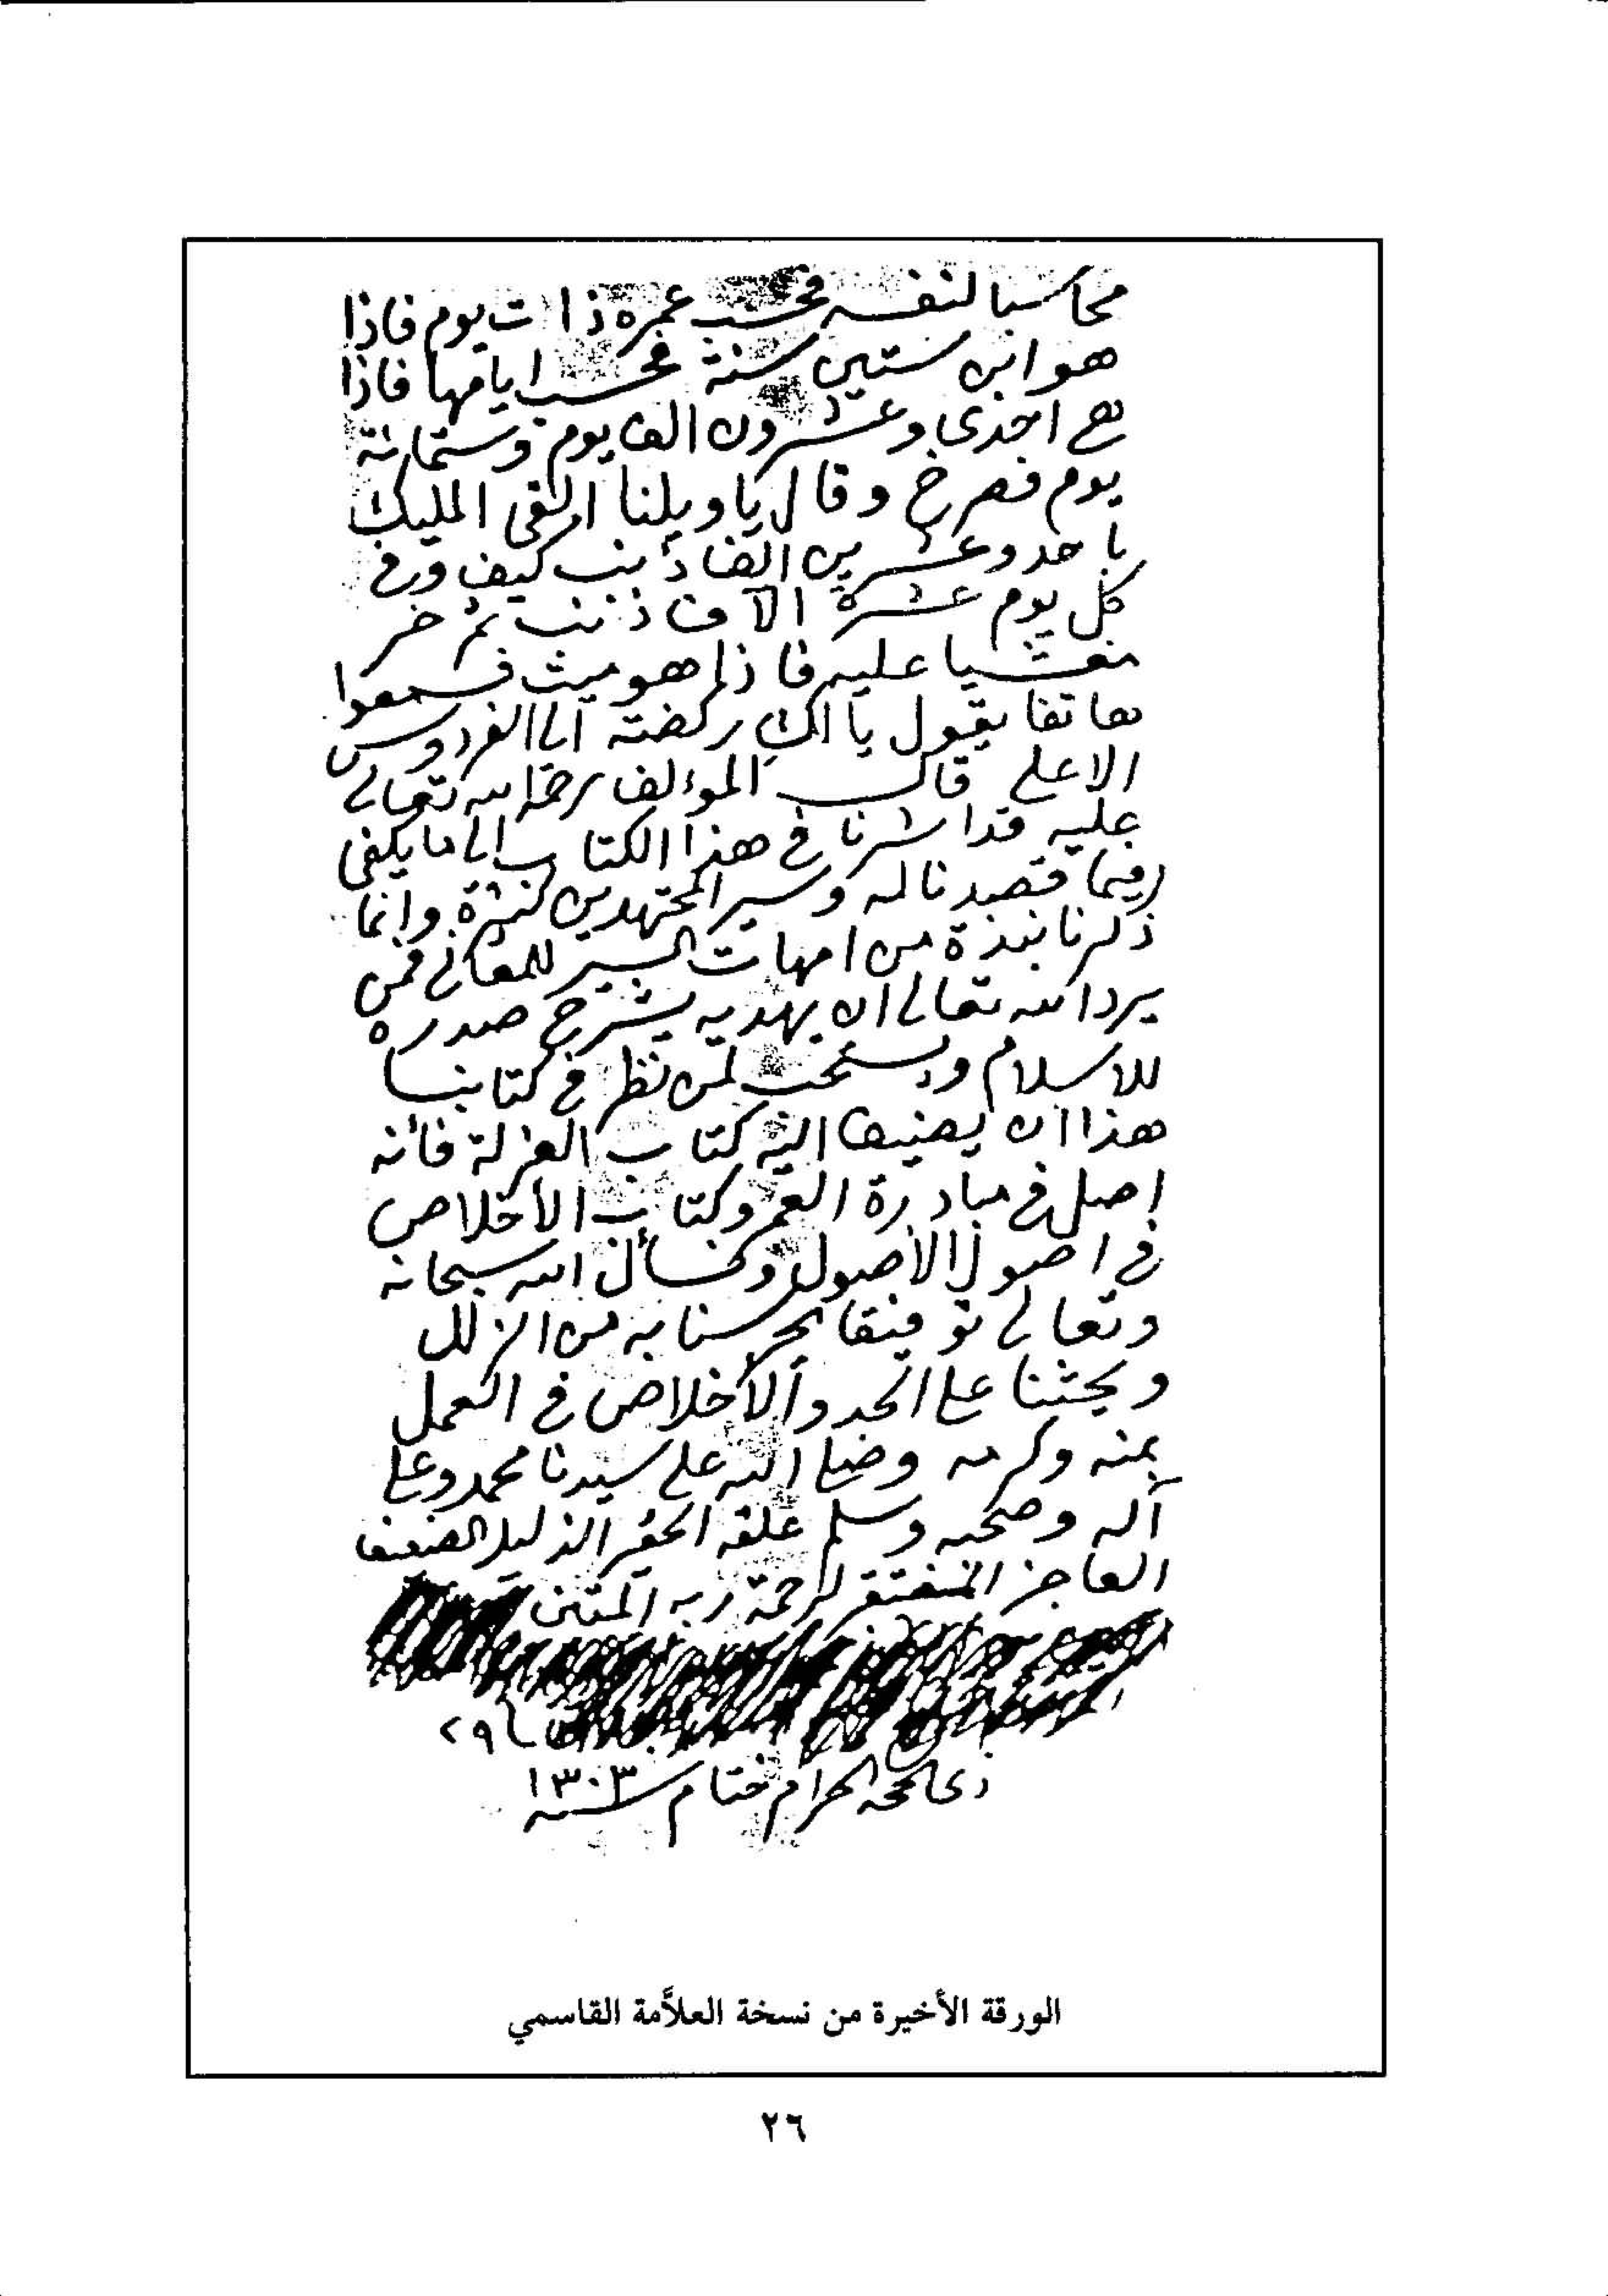 محاسبا لنفسه فحسب عمره ذات يوم فاذا
هو ابن ستين سنة فحسب ايامها فاذا
هي احدى وعشرون الف يوم وستمائة
يوم فصرخ وقال يا ويلنا القى المليك
باحد وعشرين الف ذنب كيف وفي
كل يوم عشرة الاف ذنب ثم خر
مغشيا عليه فاذا هو ميت فسمعوا
هاتفا يقول يا لك ركضة الى الفردوس
الاعلى قال المؤلف رحمة الله تعالى
عليه قد اشرنا في هذا الكتاب الى ما يكفي
فيما قصدنا له وسير المجتهدين كثيرة وانما
ذكرنا نبذة من امهات السير للمعاني فمن
يرد الله تعالى ان يهديه يشرح صدره
للاسلام ويستحب لمن نظر في كتابنا
هذا ان يضيف اليه كتاب العزلة فأنه
اصل في مبادرة العمر وكتاب الأخلاص
في اصول الأصول ونسأل الله سبحانه
وتعالى توفيقا يحرسنا به من الزلل
ويحثنا على الجد وألاخلاص في العمل
بمنه وكرمه وصلى الله على سيدنا محمد وعلى
آله وصحبه وسلم علقه الحقير الذليل الضعيف
العاجز المفتقر لرحمة ربه المتين
٢٩
ذى الحجة الحرام ختام سنة ١٣٠٣
الورقة الأخيرة من نسخة العلاَّمة القاسمي
٢٦